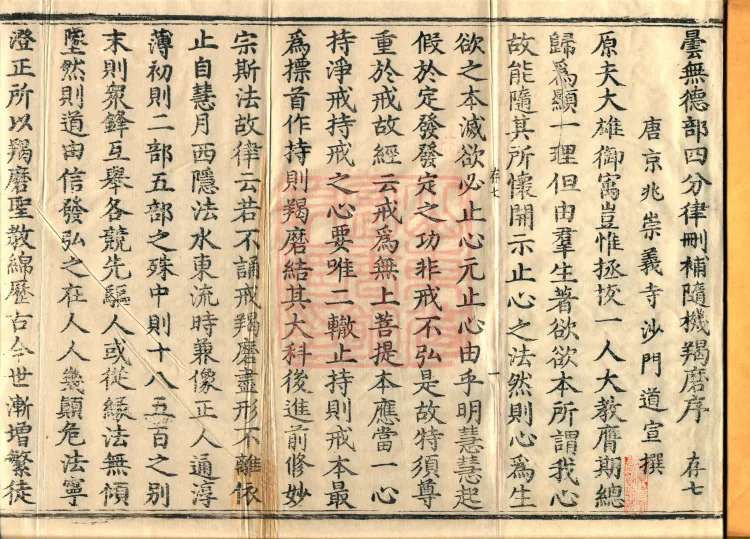 曇無德部四分律刪補隨機羯磨序 存七
唐京兆崇義寺沙門道宣撰
原夫大雄御寓豈惟拯拔一人大教膺期總
歸為顯一理但由羣生著欲欲本所謂我心
故能隨其所懷開示止心之法然則心為生
欲之本滅欲必止心元止心由乎明慧慧起
存七 一
假於定發發定之功非戒不弘是故特須尊
重於戒故經云戒為無上菩提本應當一心
持淨戒持戒之心要唯二轍止持則戒本最
為標首作持則羯磨結其大科後進前修妙
宗斯法故律云若不誦戒羯磨盡形不離依
止自慧月西隱法水東流時兼像正人通淳
薄初則二部五部之殊中則十八五百之別
末則衆鋒互舉各競先驅人或從緣法無傾
墜然則道由信發弘之在人人幾顛危法寧
澄正所以羯磨聖教綿歷古今世漸增繁徒